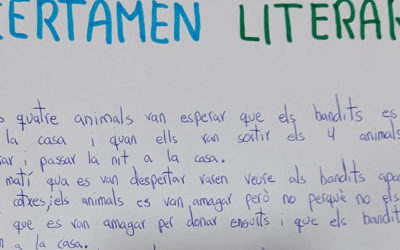 CERTAMEN LITERAR
quatre animals van esperar que els bandits es
la casa i quan ells van sortir els 4 animals
i passar la nit a la casa.
matí qua es van despertar varen veure als bandits apa
cotxes, els animals es van amagar però no perquè no els
que es van amagar per donar ensurts i que els bandit
a la casa.